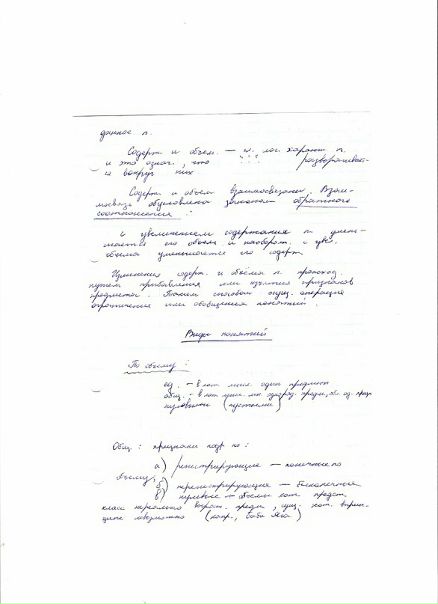 данное п.
Содерж. и объем. — лог. характ. п.
и это означ., что разворачивает-
вокруг них
Содерж. и объем взаимосвязаны. Взаи-
мосвязь обусловлена законом обратного
соотношения:
с увеличением содержания п. умень-
шается его объем и наоборот, с увел.
объема уменьшается его содерж.
Изменения содерж. и объема п. происход.
путем прибавления или изъятия признаков
предметов. Таким способом операция
ограничения или обобщения понятий.
Виды понятий
По объему:
ед. – в кот. мысл. один предмет
общ. – в кот.
нулевыми (пустыми)
Общ.: признаки подр. на:
а) регистрирующие — конечные по
объему;
б) нерегистрирующие — бесконечные
в) нулевые — объемы кот. предст.
класс реально предм., сущ. кот. в прин-
ципе невозможно (напр., Баба Яга)